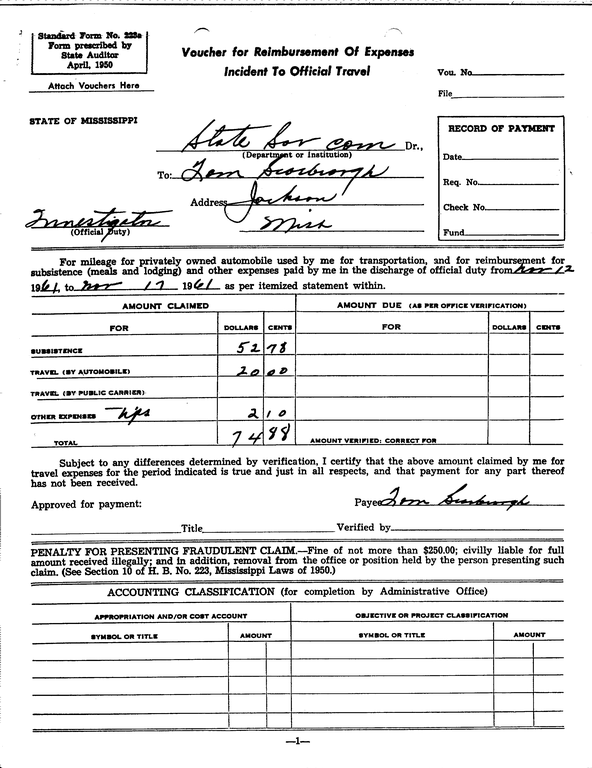 Standard Form No. 223a
Form prescribed by
State Auditor
April, 1950
Attach Vouchers Here
Voucher for Reimbursement Of Expenses
Incident To Official Travel
Vou. No.
File
STATE OF MISSISSIPPI
State Sov com Dr.,
(Department or Institution)
To: Tom Scarbrough
Address Jackson
Miss
Investigator
(Official Duty)
RECORD OF PAYMENT
Date
Req. No.
Check No.
Fund
For mileage for privately owned automobile used by me for transportation, and for reimbursement for
subsistence (meals and lodging) and other expenses paid by me in the discharge of official duty from Nov 12
1961, to Nov 17 1961 as per itemized statement within.
AMOUNT CLAIMED
AMOUNT DUE (AS PER OFFICE VERIFICATION)
FOR DOLLARS CENTS FOR DOLLARS CENTS
SUBSISTENCE 52 78
TRAVEL (BY AUTOMOBILE) 20 00
TRAVEL (BY PUBLIC CARRIER)
OTHER EXPENSES Tips 2 10
TOTAL 74 88 AMOUNT VERIFIED: CORRECT FOR
Subject to any differences determined by verification, I certify that the above amount claimed by me for
travel expenses for the period indicated is true and just in all respects, and that payment for any part thereof
has not been received.
Approved for payment: Payee Tom Scarbrough
Title Verified by
PENALTY FOR PRESENTING FRAUDULENT CLAIM.—Fine of not more than $250.00; civilly liable for full
amount received illegally; and in addition, removal from the office or position held by the person presenting such
claim. (See Section 10 of H. B. No. 223, Mississippi Laws of 1950.)
ACCOUNTING CLASSIFICATION (for completion by Administrative Office)
APPROPRIATION AND/OR COST ACCOUNT OBJECTIVE OR PROJECT CLASSIFICATION
SYMBOL OR TITLE AMOUNT SYMBOL OR TITLE AMOUNT
—1—